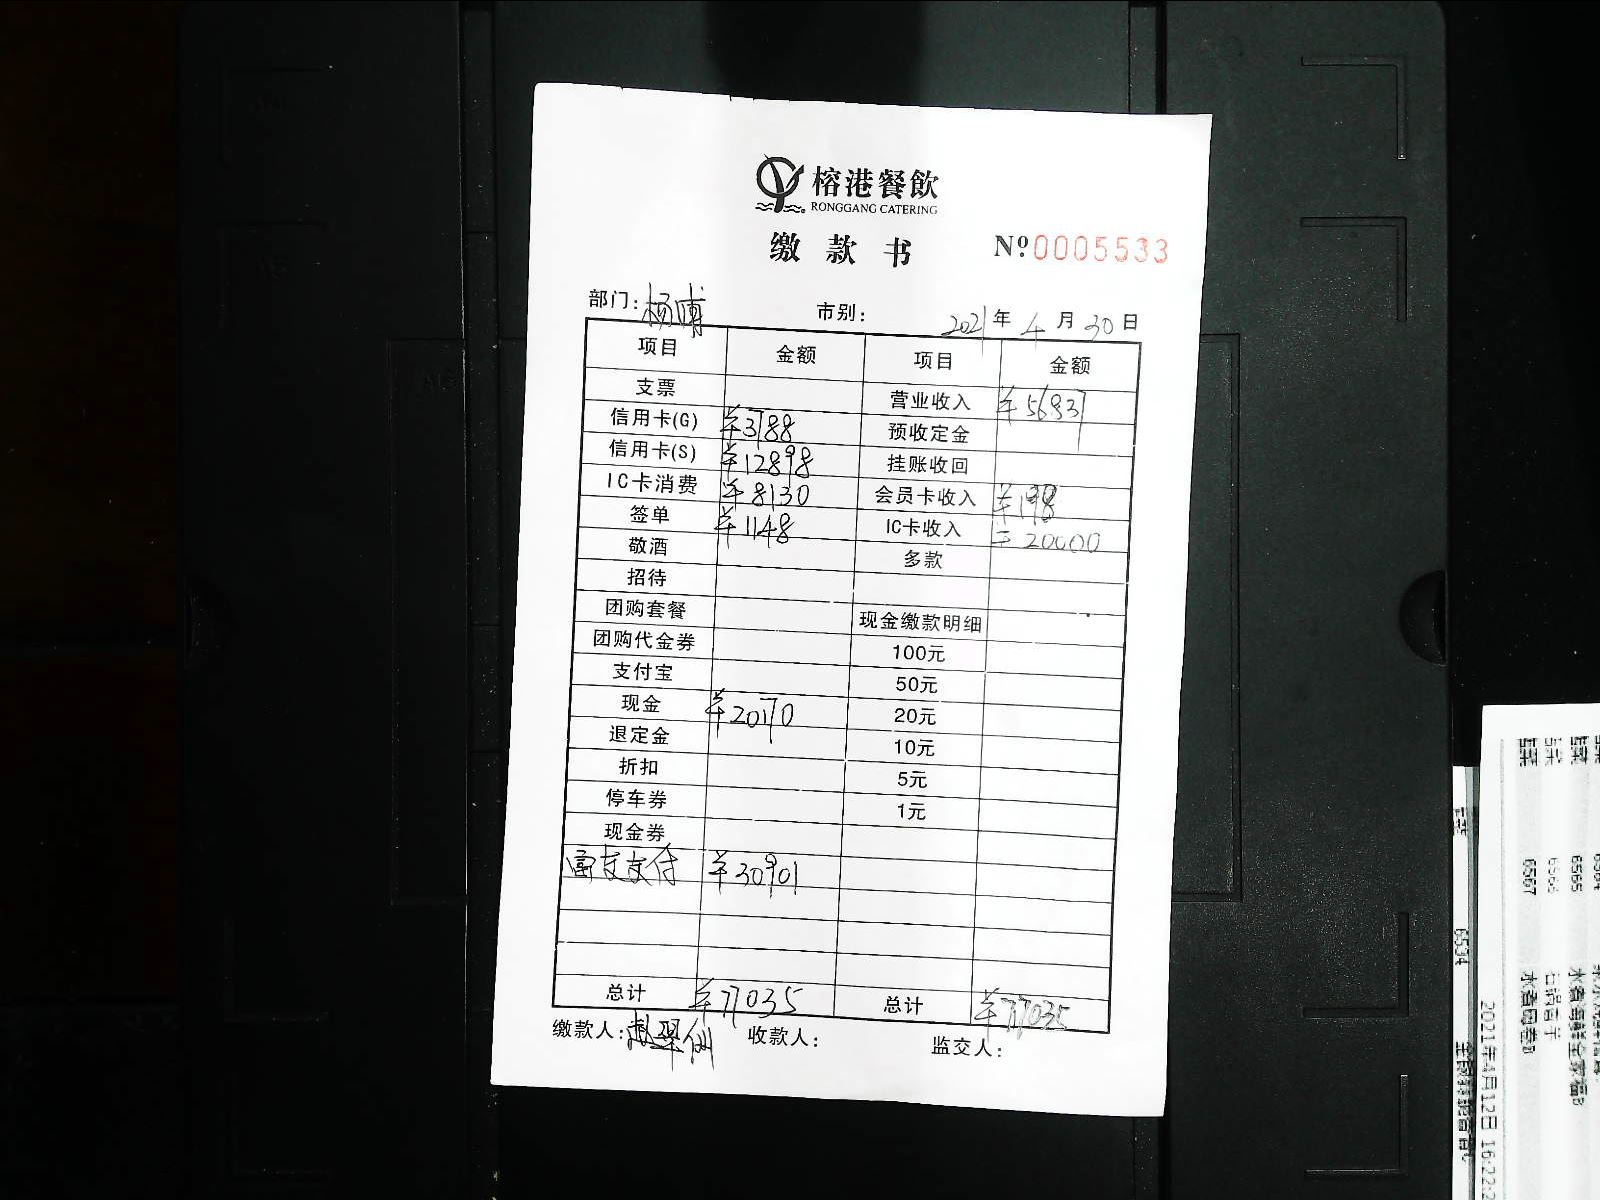 榕港餐飲
RONGGANG CATERING
缴款书 Nº 0005533
部门: 杨博 市别: 2021年4月30日
项目 金额 项目 金额
支票 营业收入 ¥56837
信用卡(G) ¥3788 预收定金
信用卡(S) ¥12898 挂账收回
IC卡消费 ¥8130 会员卡收入 ¥198
签单 ¥1148 IC卡收入 ¥20000
敬酒 多款
招待
团购套餐 现金缴款明细
团购代金券 100元
支付宝 50元
现金 ¥20170 20元
退定金 10元
折扣 5元
停车券 1元
现金券
富友支付 ¥30901
总计 ¥77035 总计 ¥77035
缴款人: 赵翠仙 收款人: 监交人:
6567
6565
6534
2021年4月12日 16:22:2